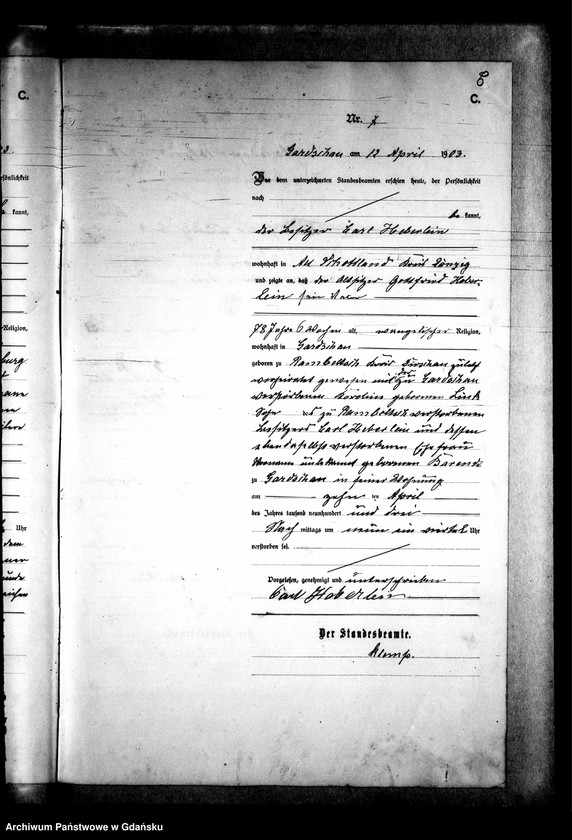 8
C.
C.
Nr. 7
Gardschau am 12 April 1903.
Vor dem unterzeichneten Standesbeamten erschien heute, der Persönlichkeit
nach
be kannt,
der Besitzer Carl Heberlein
wohnhaft in Alt Schottland Kreis Danzig
und zeigte an, daß der Altsitzer Gottfried Heber-
lein sein Vater
78 Jahre 6 Wochen alt, evangelischer Religion,
wohnhaft in Gardschau
geboren zu Rambeltsch Kreis Dirschau zuletzt
verheiratet gewesen mit der zu Gardschau
verstorbenen Caroline geborenen Link
Sohn des zu Rambeltsch verstorbenen
Besitzers Carl Heberlein und dessen
ebendaselbst verstorbenen Ehefrau
Vorname unbekannt geborenen Barendt
zu Gardschau in seiner Wohnung
am zehn ten April
des Jahres tausend neunhundert und drei
Nach mittags um neun ein viertel Uhr
verstorben sei.
Vorgelesen, genehmigt und unterschrieben
Carl Heberlein
Der Standesbeamte.
Klemp.
Religion,
Uhr
Archiwum Państwowe w Gdańsku